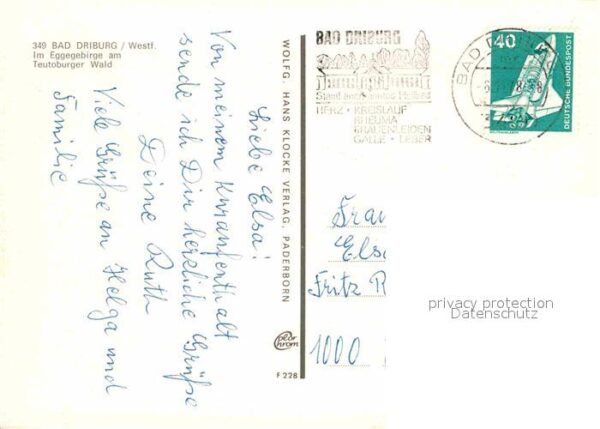 349 BAD DRIBURG / Westf.
Im Eggegebirge am
Teutoburger Wald
Liebe Elsa!
Von meinem Kuraufenthalt
sende ich Dir herzliche Grüße
Deine Ruth
Viele Grüße an Helga und
Familie
WOLFG. HANS KLOCKE VERLAG, PADERBORN
Color Chrom
F 228
BAD DRIBURG
HERZ · KREISLAUF
RHEUMA
FRAUENLEIDEN
GALLE · LEBER
BAD
40
DEUTSCHE BUNDESPOST
Frau
Els
Fritz
1000
privacy protection
Datenschutz